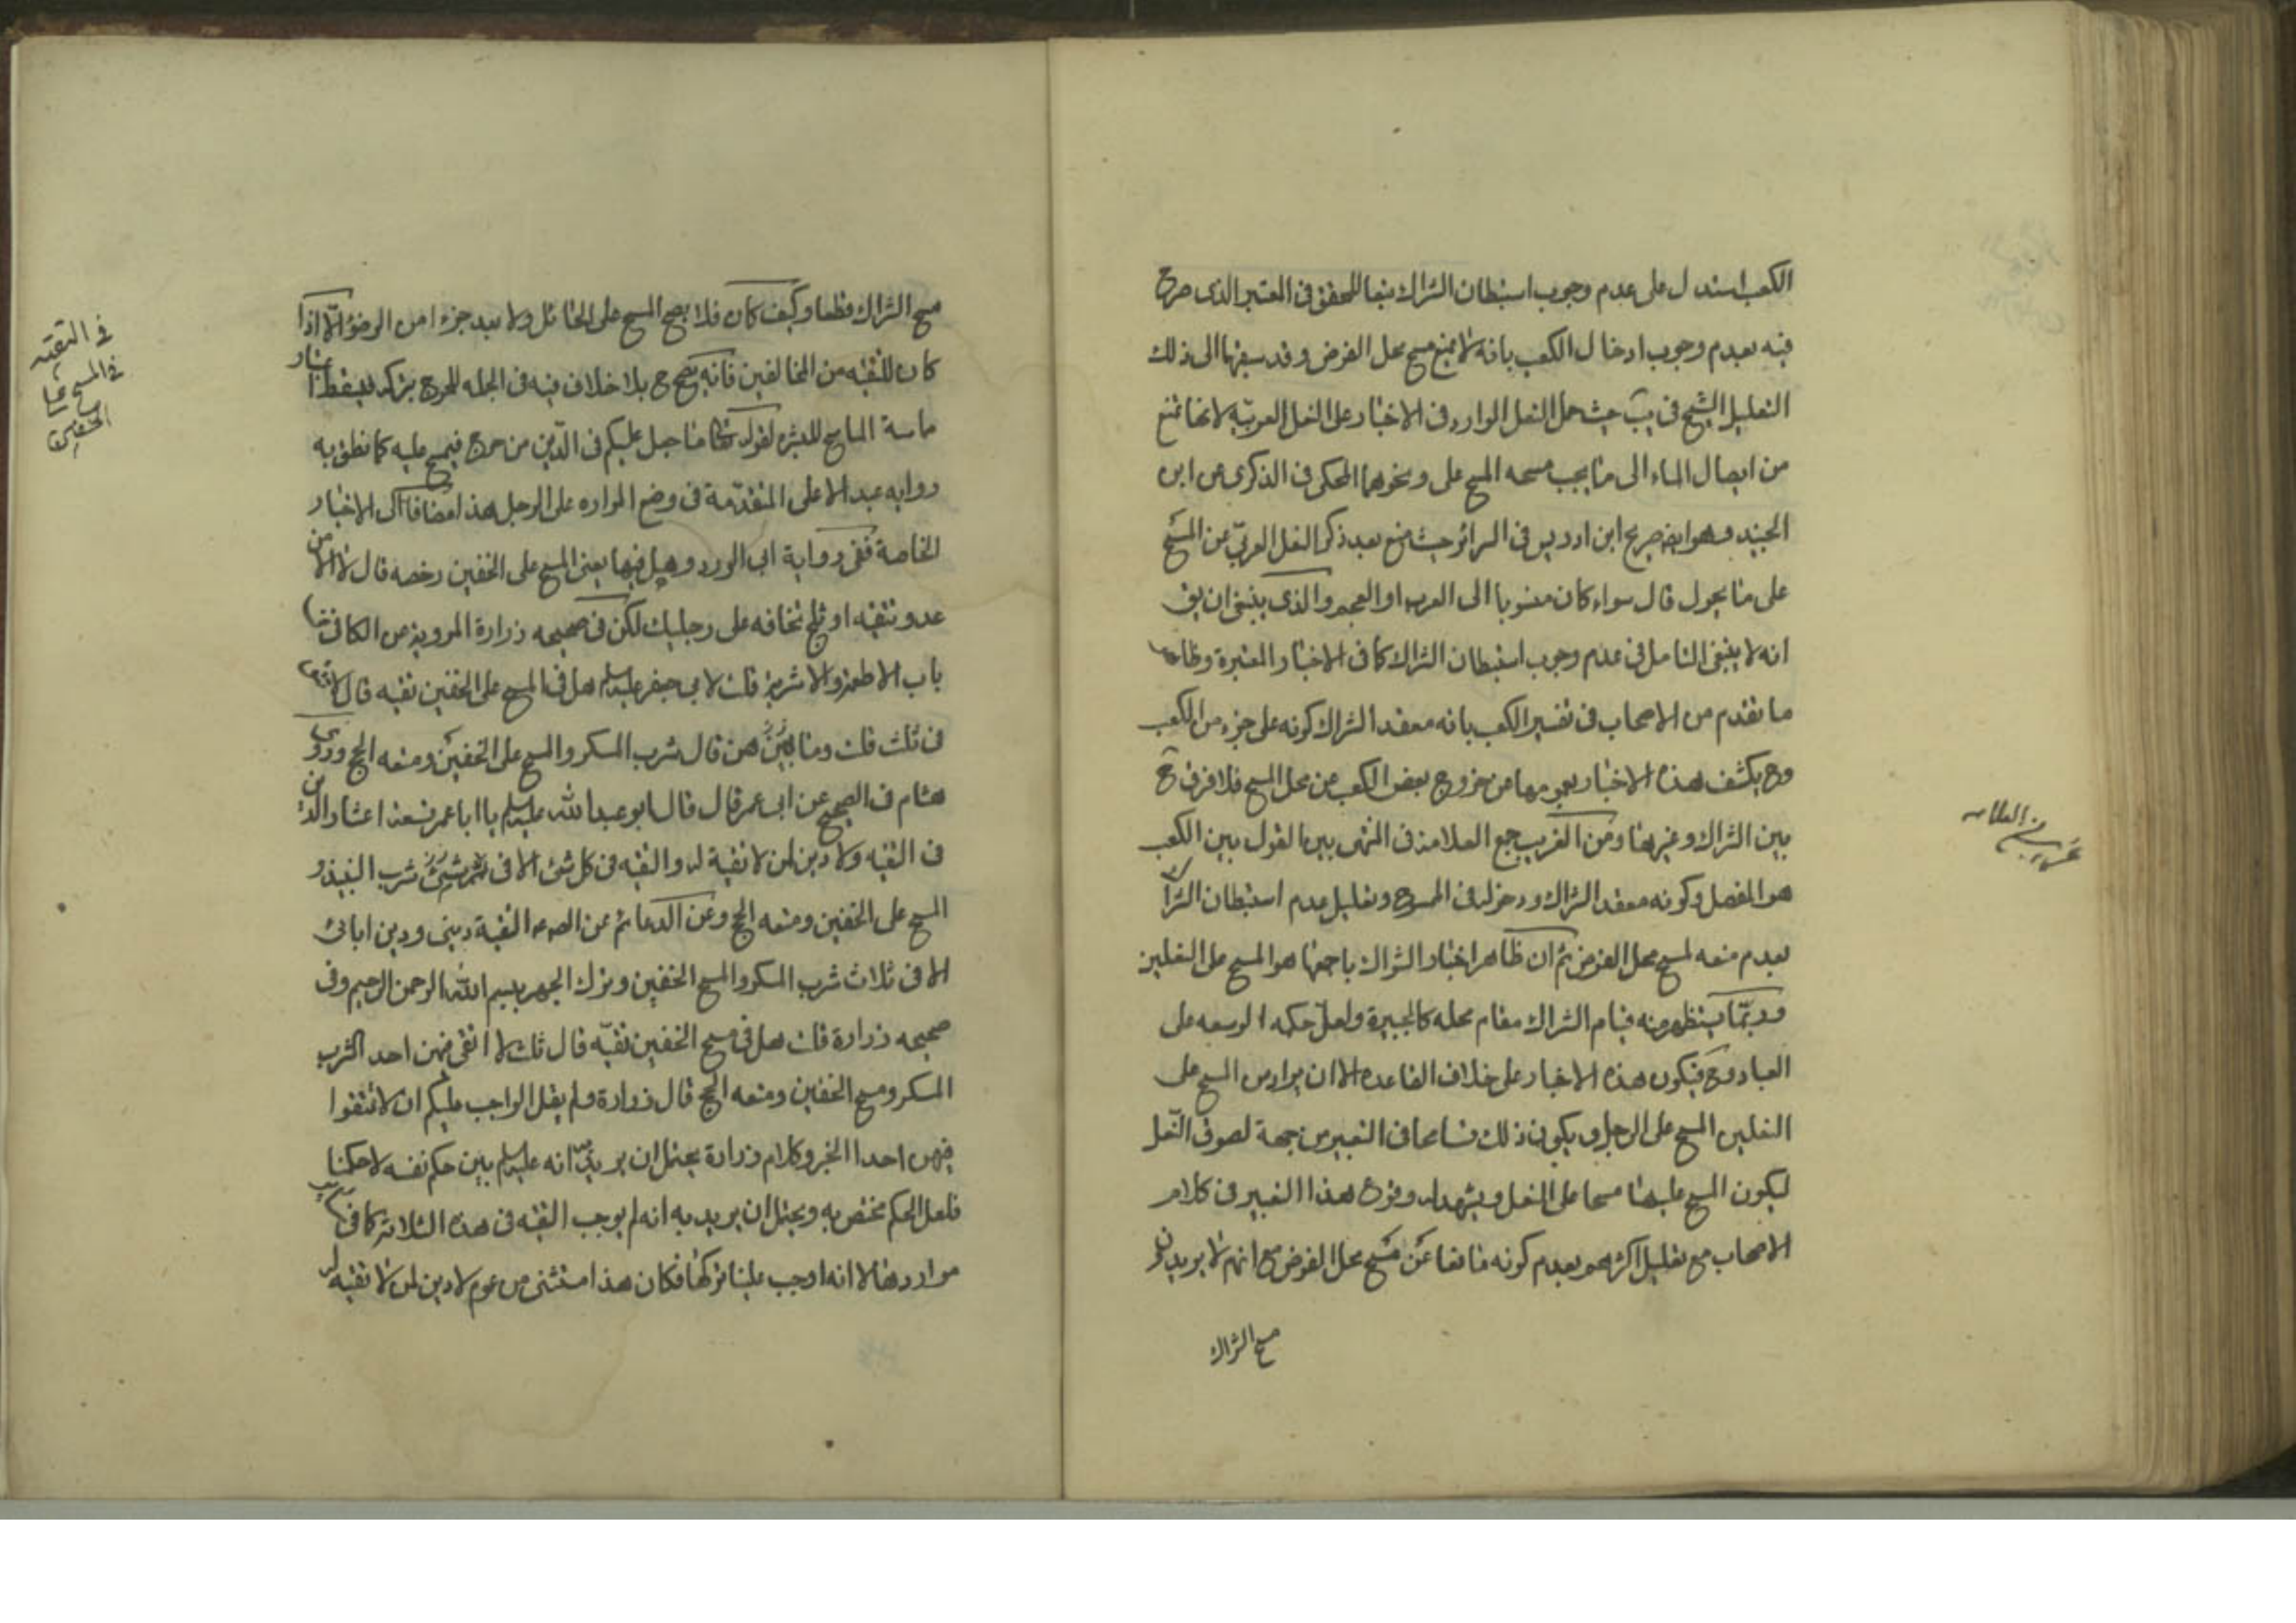 الكعب استدل على عدم وجوب استبطان الشراك تبعا للمحقق فى المعتبر الذى صرح
فيه بعدم وجوب ادخال الكعب بانه لا يمنع مسح محل الفرض وقد سبقهما الى ذلك
التعليل الشيخ فى يب حيث حمل النعل الوارد فى الاخبار على النعل العربية لانها لا تمنع
من ايصال الماء الى ما يجب مسحه المسح على ونحوهما المحكى فى الذكرى عن ابن
الجنيد وهو ايضا صريح ابن ادريس فى السرائر حيث منع بعد ذكر النعل العربى عن المسح
على ما يحول قال سواء كان منسوبا الى العرب او العجم والذى ينبغى ان يق
انه لا ينبغى التامل فى عدم وجوب استبطان الشراك كما فى الاخبار المعتبرة وظاهر
ما تقدم من الاصحاب فى تفسير الكعب بانه معقد الشراك كونه على جزء من الكعب
وح يكشف هذه الاخبار بعمومها عن خروج بعض الكعب عن محل المسح فلا فرق ح
بين الشراك وغيرها ومن الغريب جمع العلامة فى المنتهى بين القول بين الكعب
هو المفصل وكونه معقد الشراك ودخوله فى الممسوح وتعليل عدم استبطان الشراك
بعدم منعه لمسح محل الفرض ثم ان ظاهر اخبار الشراك باجمعها هو المسح على النعلين
وربما يستظهر منه قيام الشراك مقام محله كالجبيرة ولعل حكمه الوسعه على
العباد وح فيكون هذه الاخبار على خلاف القاعده الا ان يراد من المسح على
النعلين المسح على الرجل ويكون ذلك تسامحا فى التعبير من جهة لصوق النعل
ليكون المسح عليهما مسحا على النعل ويشهد له وقوع هذا التعبير فى كلام
الاصحاب مع تعليل اكثرهم بعدم كونه مانعا عن مسح محل الفرض مع انهم لا يريدون
مسح الشراك
غريب من العلامه
مسح الشراك قطعا وكيف كان فلا يصح المسح على الحائل ولا يعد جزءا من الوضوء الا اذا
كان للتقيه من المخالفين فانه يصح ح بلا خلاف فيه فى الجمله للحرج بتركه فيسقط اعتبار
ماسة الماسح للبشره لقوله تعا ما جعل عليكم فى الدين من حرج فيمسح عليه كما نطق به
روايه عبد الاعلى المتقدمة فى وضع المراره على الرجل هذا مضافا الى الاخبار
الخاصة ففى رواية ابى الورد وهل فيها يعنى المسح على الخفين رخصه قال لا الا من
عدو تتقيه او ثلج تخافه على رجليك لكن فى صحيحه زرارة المرويه عن الكافى فى
باب الاطعمة والاشربة قلت لابى جعفر عليه السلم هل فى المسح على الخفين تقيه قال لا تتقى
فى ثلث قلت وما هن قال شرب المسكر والمسح على الخفين ومتعه الحج وروى
هشام فى الصحيح عن ابى عمر قال قال ابو عبد الله عليه السلم يا ابا عمر تسعة اعشار الدين
فى التقيه ولا دين لمن لا تقية له والتقيه فى كل شئ الا فى شرب النبيذ و
المسح على الخفين ومتعه الحج وعن الدعائم عن الص ع التقية دينى ودين ابائى
الا فى ثلاث شرب المسكر والمسح الخفين وترك الجهر ببسم الله الرحمن الرحيم وفى
صحيحه زرارة قلت هل فى مسح الخفين تقية قال ثلث لا اتقى فيهن احد اشرب
المسكر ومسح الخفين ومتعه الحج قال زرارة ولم يقل الواجب عليكم ان لا تتقوا
فيهن احدا الخبر وكلام زرارة يحتمل ان يريد به انه عليه السلم بين حكم نفسه لا حكمنا
فلعل الحكم مختص به ويحتمل ان يريد به انه لم يوجب التقيه فى هذه الثلاثه كما فى
مواردها الا انه اوجب علينا تركها فكان هذا استثنى من عموم لا دين لمن لا تقيه له
فى التقيه
فى المسح على
الخفين